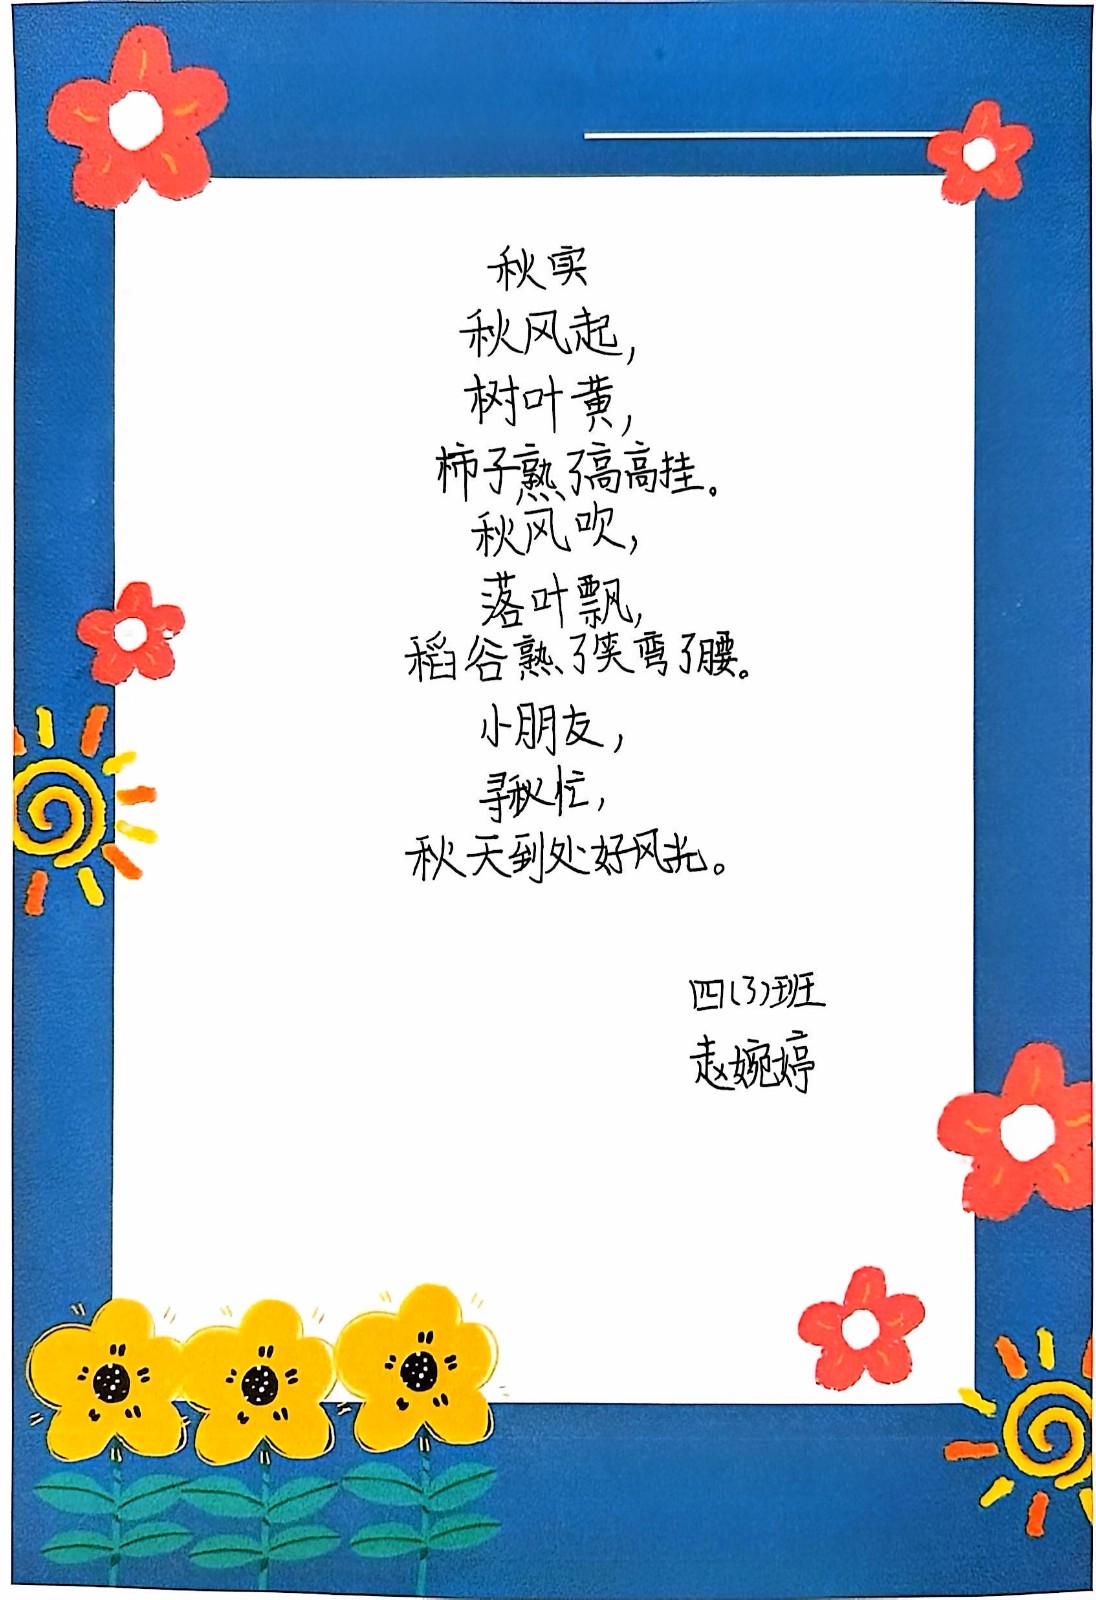 秋实
秋风起，
树叶黄，
柿子熟了高高挂。
秋风吹，
落叶飘，
稻谷熟了笑弯了腰。
小朋友，
寻秋忙，
秋天到处好风光。
四(3)班
赵婉婷